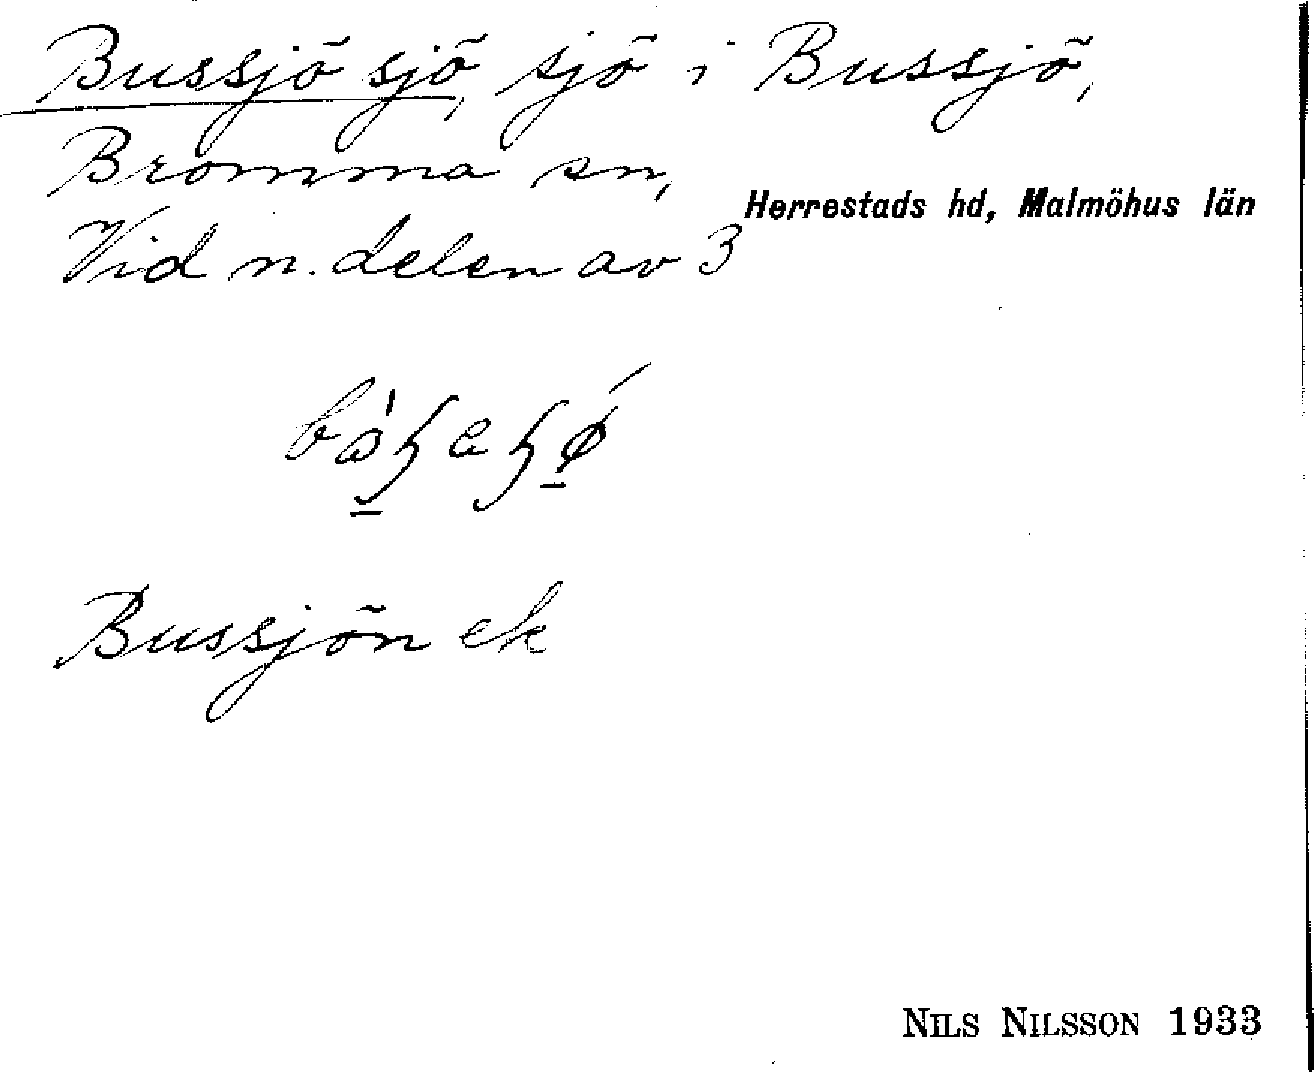 Bussjö sjö, sjö i Bussjö,
Bromma sn,
Herrestads hd, Malmöhus län
Vid n. delen av 3
Bussjön ek
NILS NILSSON 1933